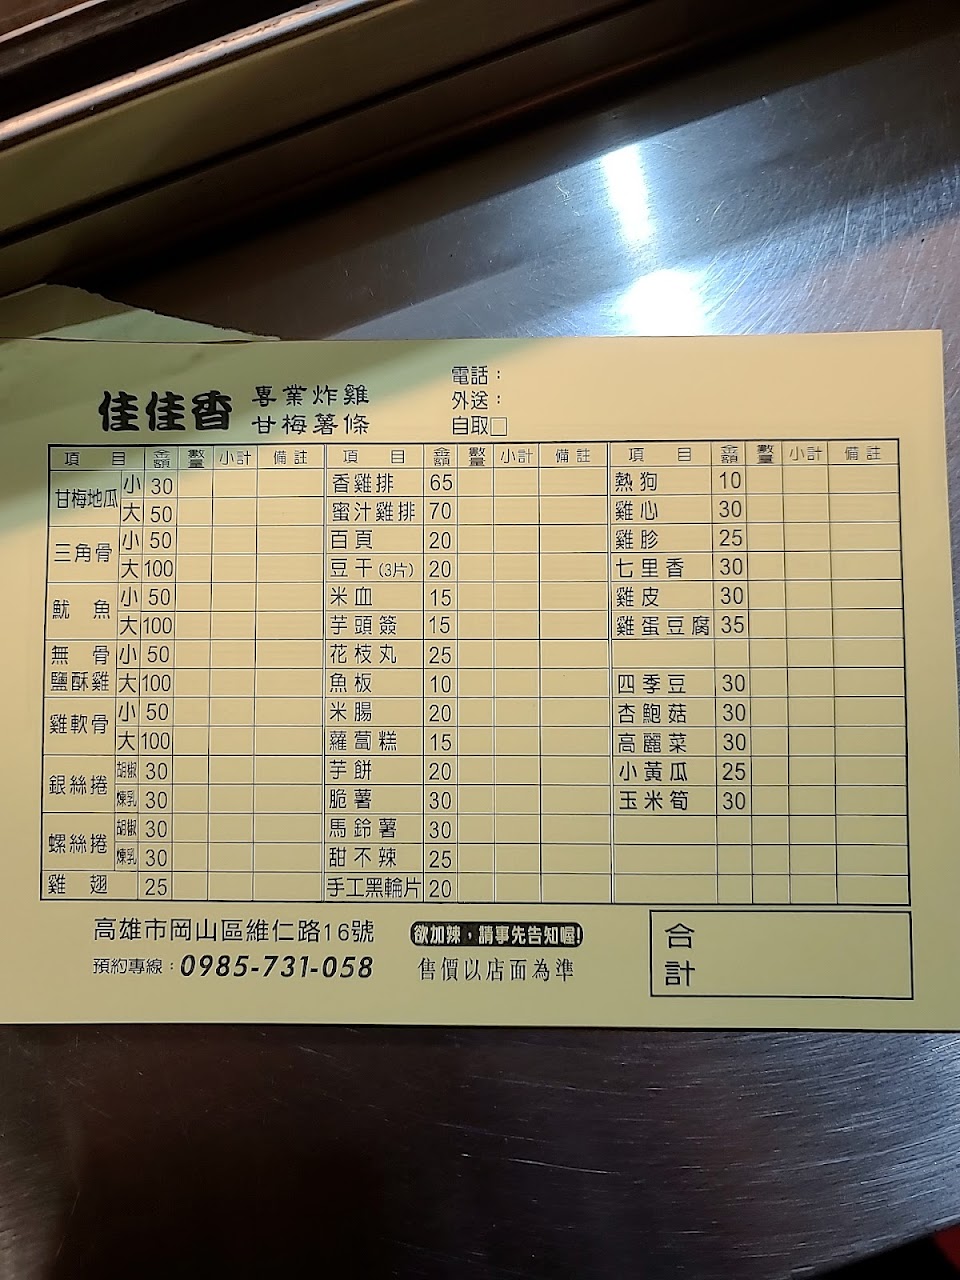 佳佳香 專業炸雞
甘梅薯條
電話：
外送：
自取□
項目 金額 數量 小計 備註 項目 金額 數量 小計 備註 項目 金額 數量 小計 備註
甘梅地瓜 小 30 香雞排 65 熱狗 10
大 50 蜜汁雞排 70 雞心 30
三角骨 小 50 百頁 20 雞胗 25
大 100 豆干(3片) 20 七里香 30
魷魚 小 50 米血 15 雞皮 30
大 100 芋頭簽 15 雞蛋豆腐 35
無骨 小 50 花枝丸 25
鹽酥雞 大 100 魚板 10 四季豆 30
雞軟骨 小 50 米腸 20 杏鮑菇 30
大 100 蘿蔔糕 15 高麗菜 30
銀絲捲 胡椒 30 芋餅 20 小黃瓜 25
煉乳 30 脆薯 30 玉米筍 30
螺絲捲 胡椒 30 馬鈴薯 30
煉乳 30 甜不辣 25
雞翅 25 手工黑輪片 20
高雄市岡山區維仁路16號 欲加辣，請事先告知喔!
預約專線：0985-731-058 售價以店面為準
合計